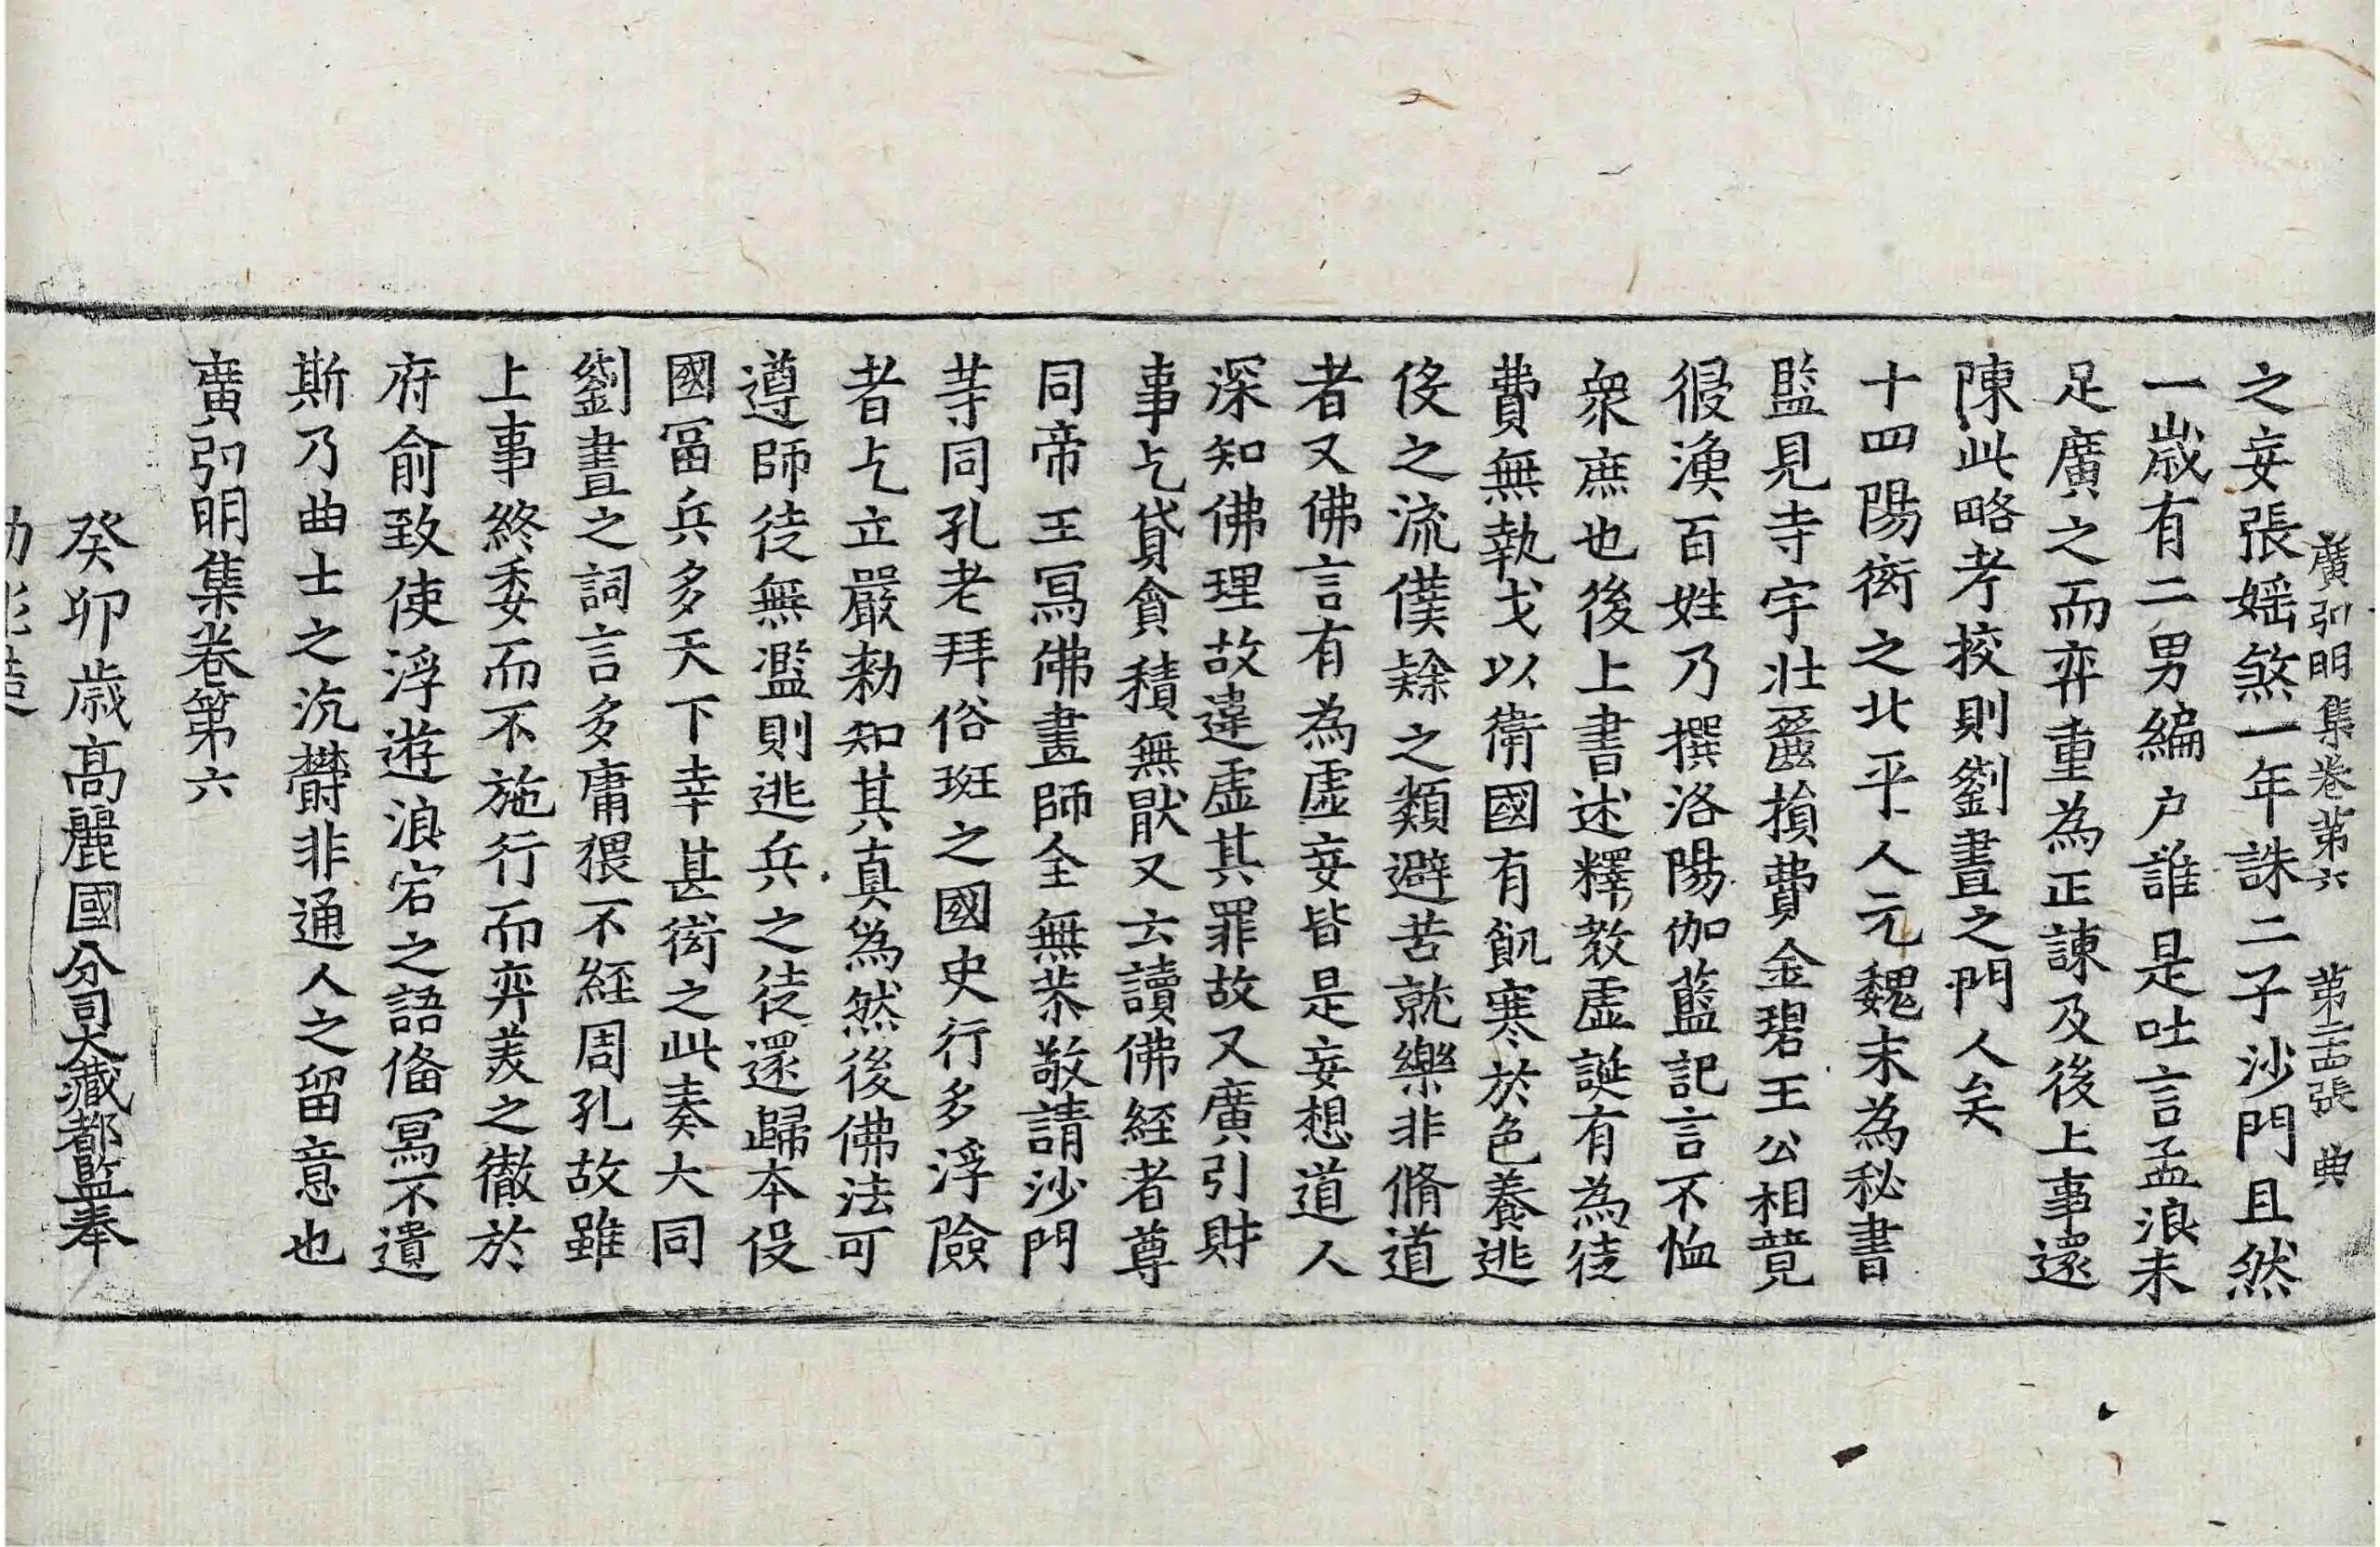 廣弘明集卷第六 第二十四張 典
之妄張媱煞一年誅二子沙門且然
一歲有二男編戶誰是吐言孟浪未
足廣之而弃重為正諫及後上事還
陳此略考挍則劉晝之門人矣
十四陽衒之北平人元魏末為秘書
監見寺宇壯麗損費金碧王公相競
侵漁百姓乃撰洛陽伽藍記言不恤
衆庶也後上書述釋教虛誕有為徒
費無執戈以衛國有飢寒於色養逃
役之流僕隸之類避苦就樂非脩道
者又佛言有為虛妄皆是妄想道人
深知佛理故違虛其罪故又廣引財
事乞貸貪積無猒又云讀佛經者尊
同帝王冩佛畫師全無恭敬請沙門
等同孔老拜俗班之國史行多浮險
者乞立嚴勑知其真偽然後佛法可
遵師徒無濫則逃兵之徒還歸本役
國冨兵多天下幸甚衒之此奏大同
劉晝之詞言多庸猥不經周孔故雖
上事終委而不施行而弃羙之徹於
府俞致使浮遊浪宕之語俻冩不遺
斯乃曲士之沉欝非通人之留意也
廣弘明集卷第六
癸卯歲高麗國分司大藏都監奉